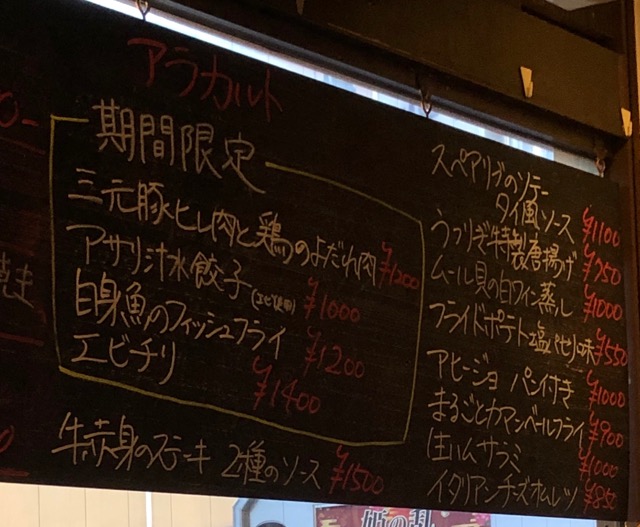 アラカルト
期間限定
三元豚ヒレ肉と鶏のよだれ肉 ¥1200
アサリ汁水餃子(エビ使用) ¥1000
白身魚のフィッシュフライ ¥1200
エビチリ ¥1400
牛赤身のステーキ 2種のソース ¥1500
スペアリブのソテー
タイ風ソース ¥1100
うずりぎ特製唐揚げ ¥750
ムール貝の白ワイン蒸し ¥1000
フライドポテト 塩パセリ味 ¥550
アヒージョ パン付き ¥1000
まるごとカマンベールフライ ¥900
生ハムサラミ ¥1000
イタリアンチーズオムレツ ¥850
焼き
姫の乱